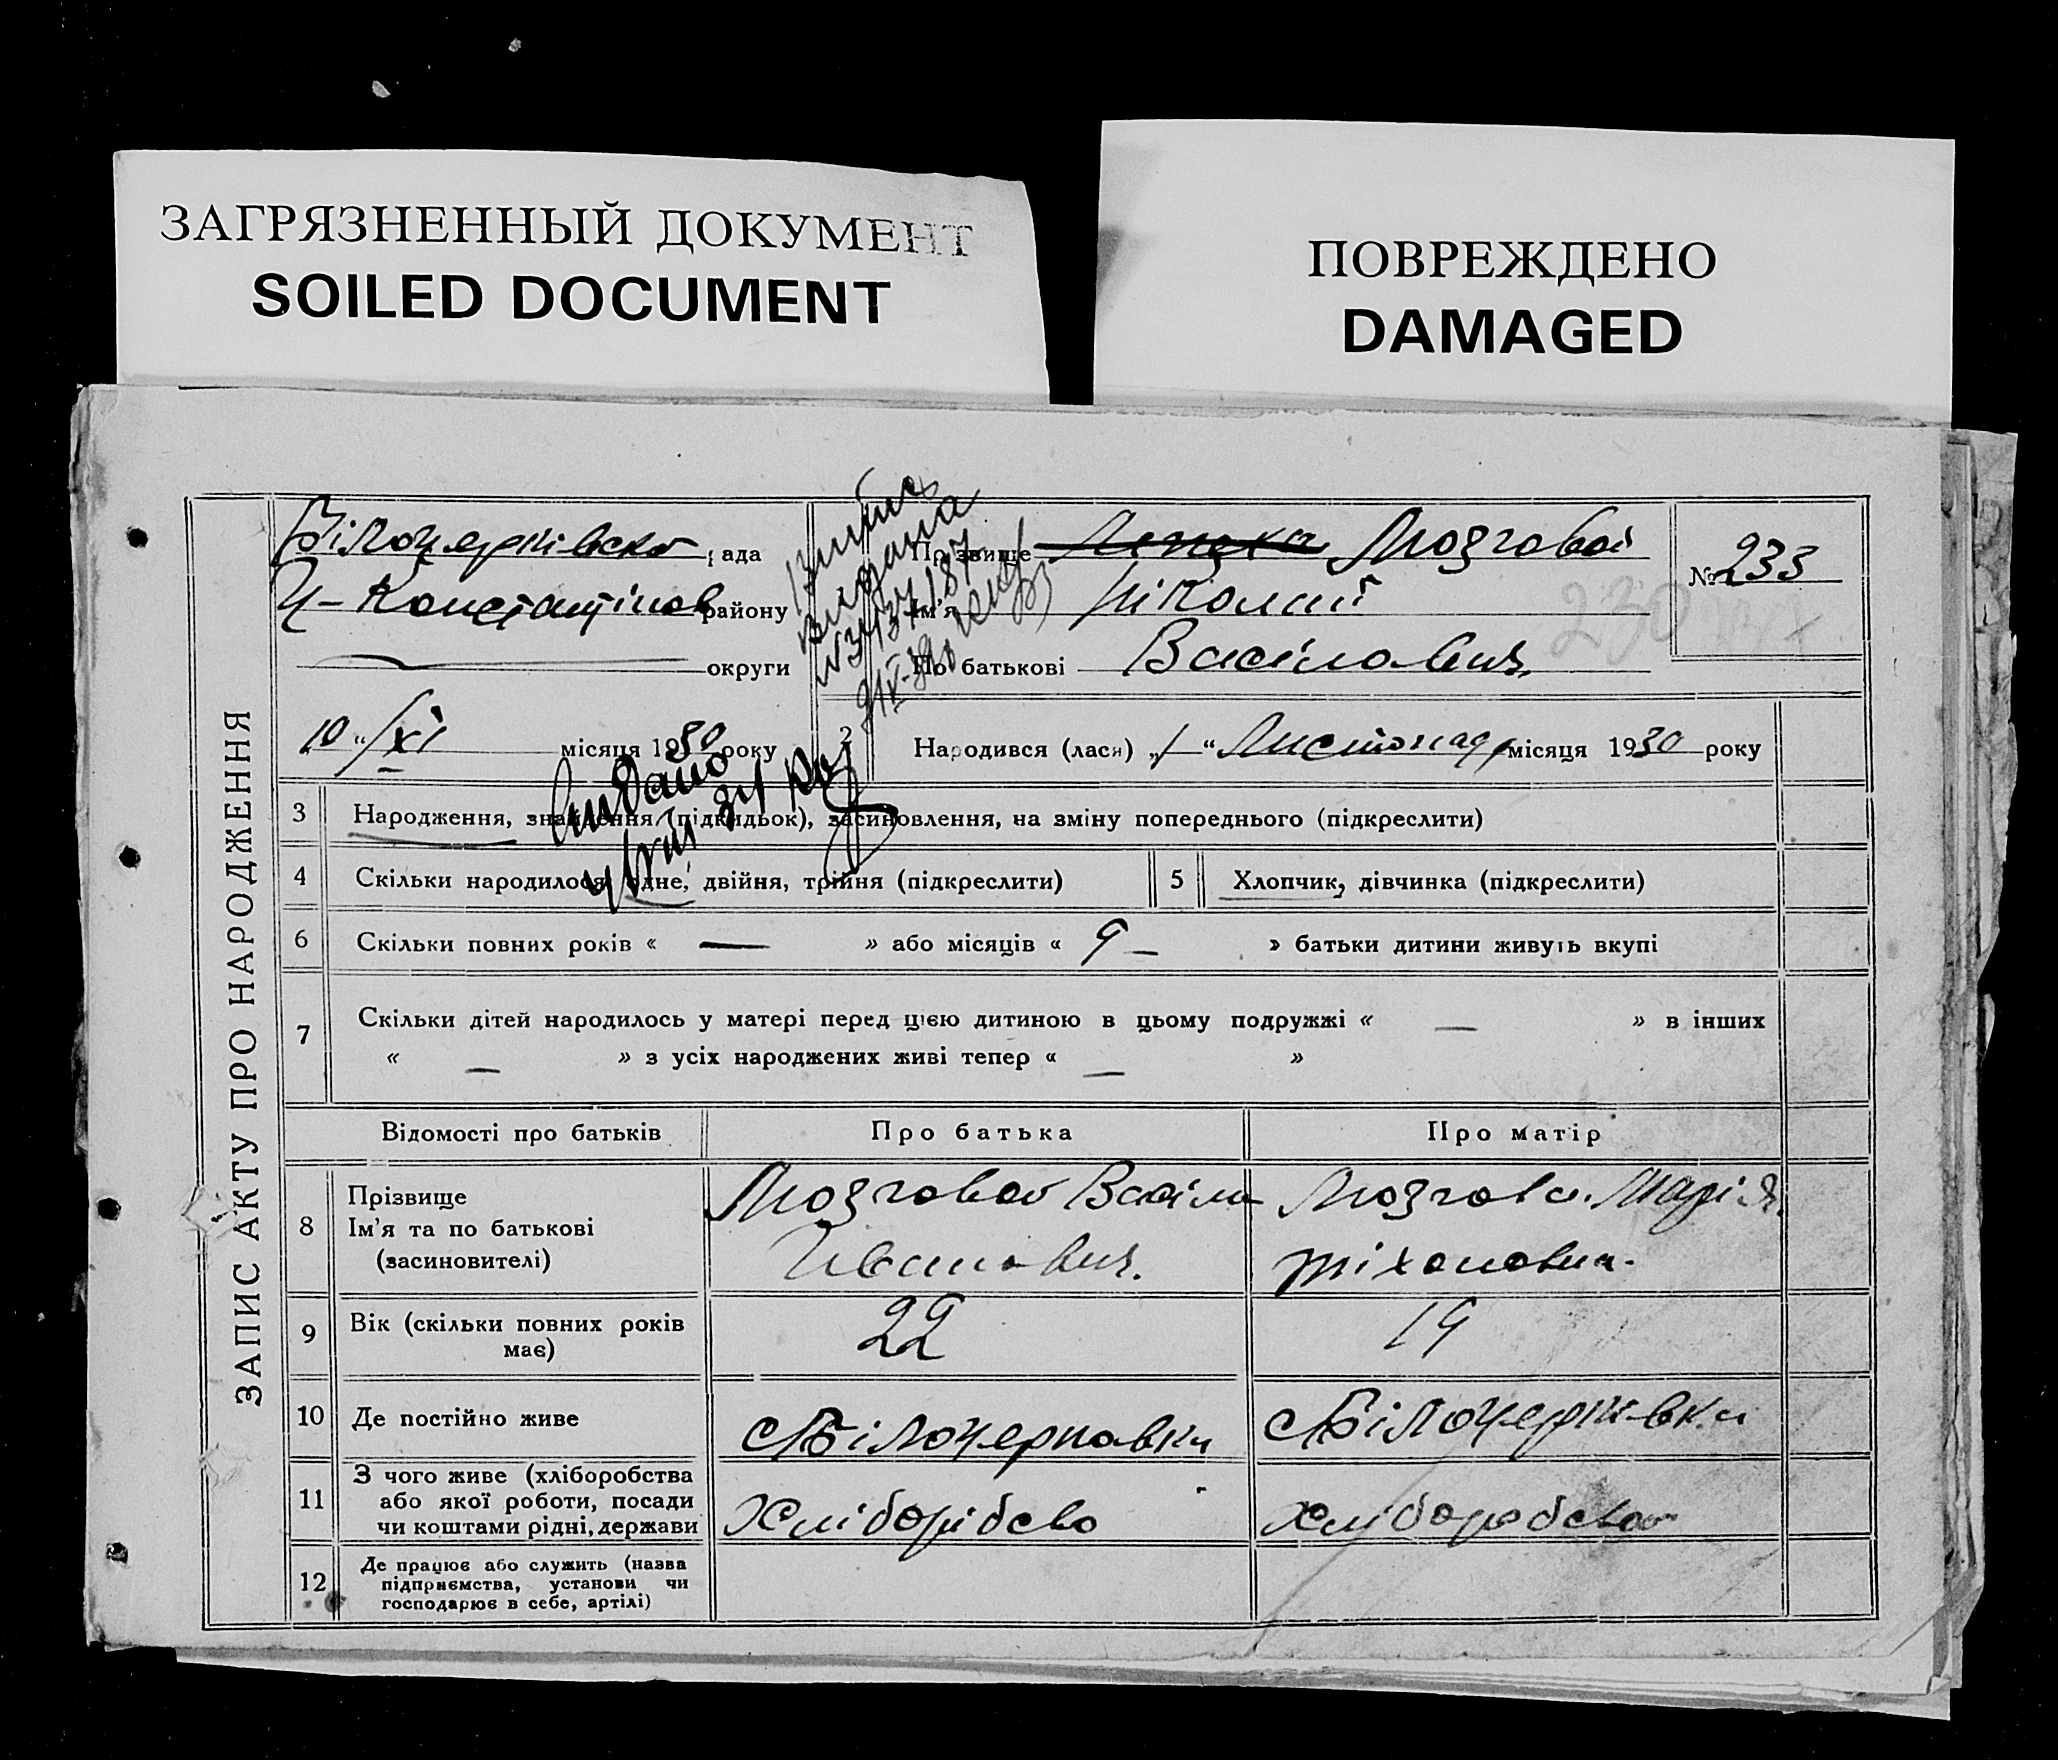 ЗАГРЯЗНЕННЫЙ ДОКУМЕНТ
SOILED DOCUMENT
ПОВРЕЖДЕНО
DAMAGED
ЗАПИС АКТУ ПРО НАРОДЖЕННЯ
Білоцерківско рада
району
округи
Прізвище Мозговой
Ім'я Ніколай
По батькові Васілович
№ 233
230
10 "/XI місяця 1930 року
2 Народився (лася) „1" Листопад місяця 1930 року
видано
3 Народження, знайдення (підкидьок), засиновлення, на зміну попереднього (підкреслити)
4 Скільки народилося одне, двійня, трійня (підкреслити)
5 Хлопчик, дівчинка (підкреслити)
6 Скільки повних років « — » або місяців « 9 — » батьки дитини живуть вкупі
7 Скільки дітей народилось у матері перед цією дитиною в цьому подружжі « — » в інших
« — » з усіх народжених живі тепер « — »
Відомості про батьків Про батька Про матір
8 Прізвище
Ім'я та по батькові
(засиновителі)
Мозговой Васіль
Иванович.
Мозгова Марія
Тіхонович.
9 Вік (скільки повних років
має)
22 19
10 Де постійно живе
с Білоцерковки с Білоцерківки
11 З чого живе (хліборобства
або якої роботи, посади
чи коштами рідні, держави
Хліборібсво Хліборобсво
12 Де працює або служить (назва
підприємства, установи чи
господарює в себе, артілі)